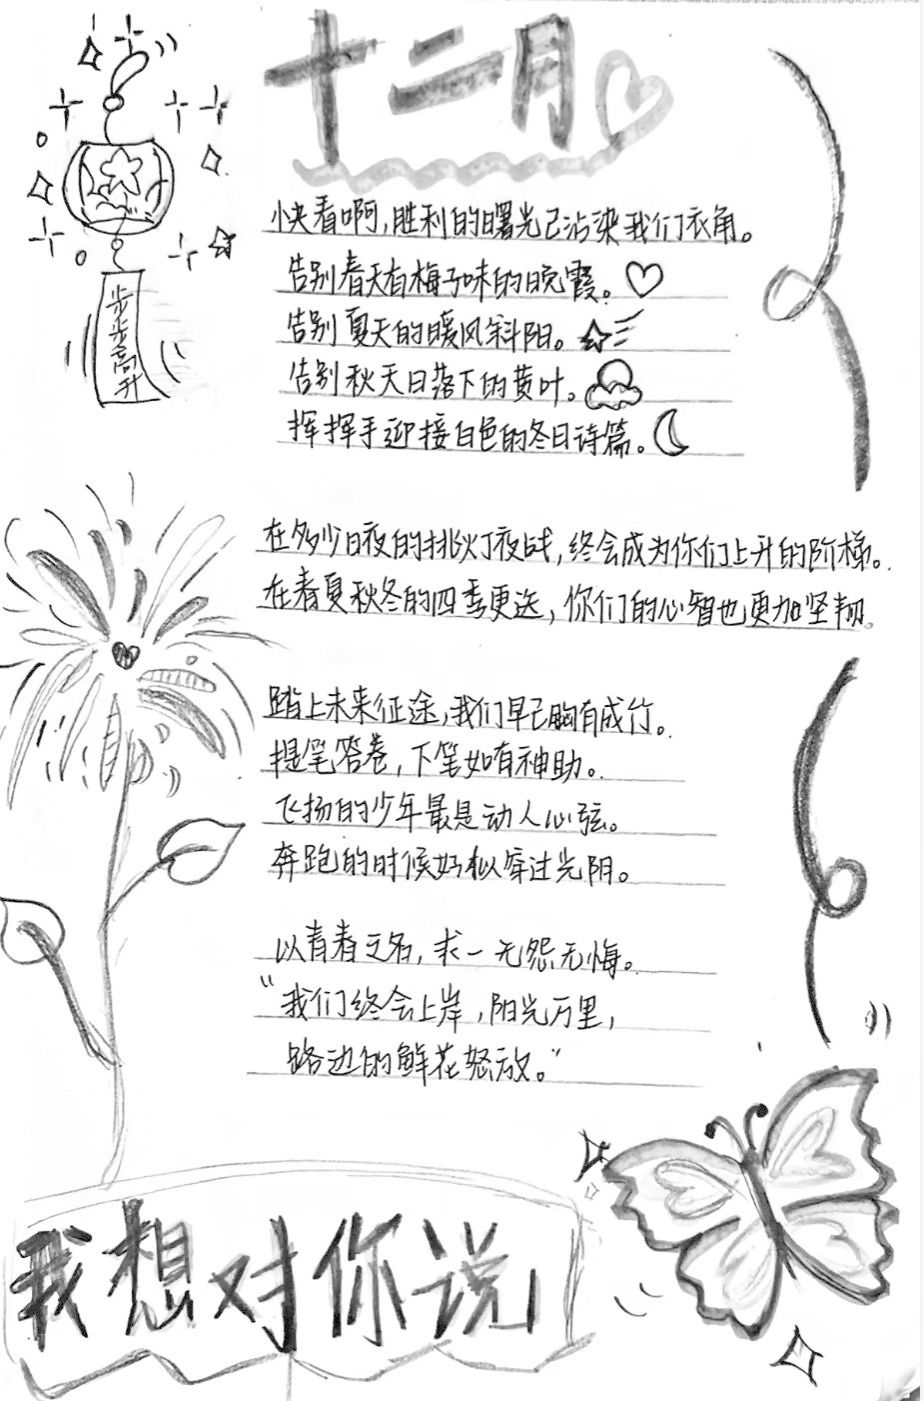 十二月
步步高升
快看啊,胜利的曙光已沾染我们衣角。
告别春天有梅子味的晚霞。
告别夏天的暖风斜阳。
告别秋天日落下的黄叶。
挥挥手迎接白色的冬日诗篇。
在多少日夜的挑灯夜战,终会成为你们上升的阶梯。
在春夏秋冬的四季更迭,你们的心智也更加坚韧。
踏上未来征途,我们早已胸有成竹。
提笔答卷,下笔如有神助。
飞扬的少年最是动人心弦。
奔跑的时候好似穿过光阴。
以青春之名,求一无怨无悔。
“我们终会上岸,阳光万里,
路边的鲜花怒放。”
我想对你说